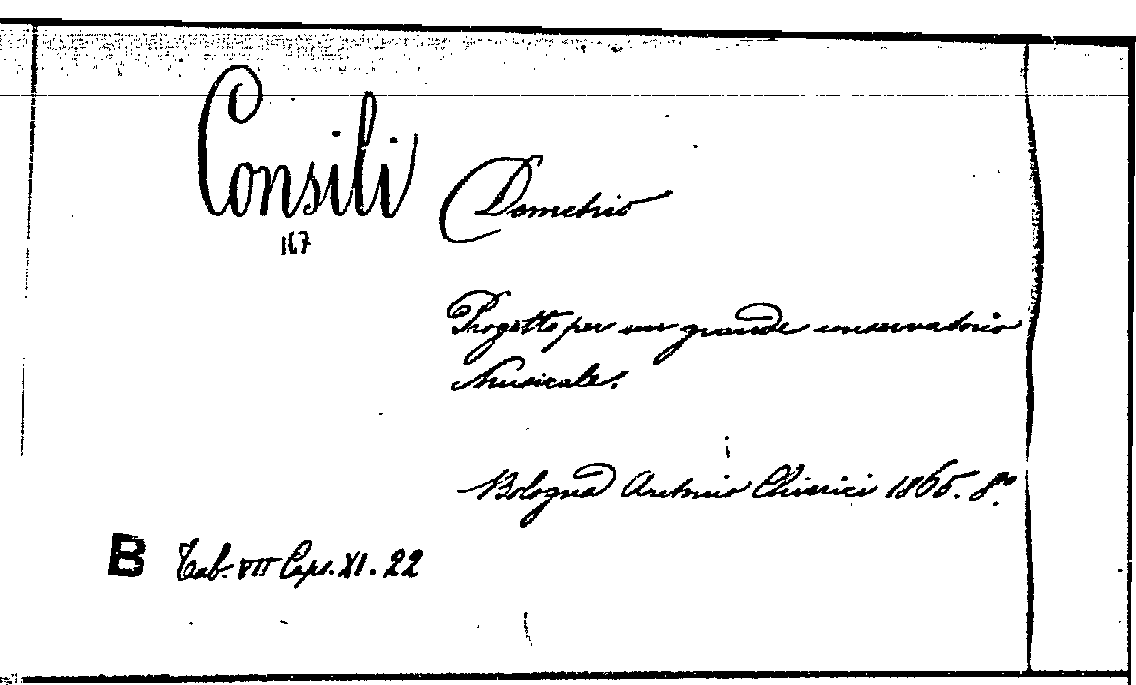 Consili
167
Demetrio
Progetto per un grande conservatorio
Musicale.
Bologna Antonio Chierici 1865. 8º
B Tab. VII Caps. XI. 22